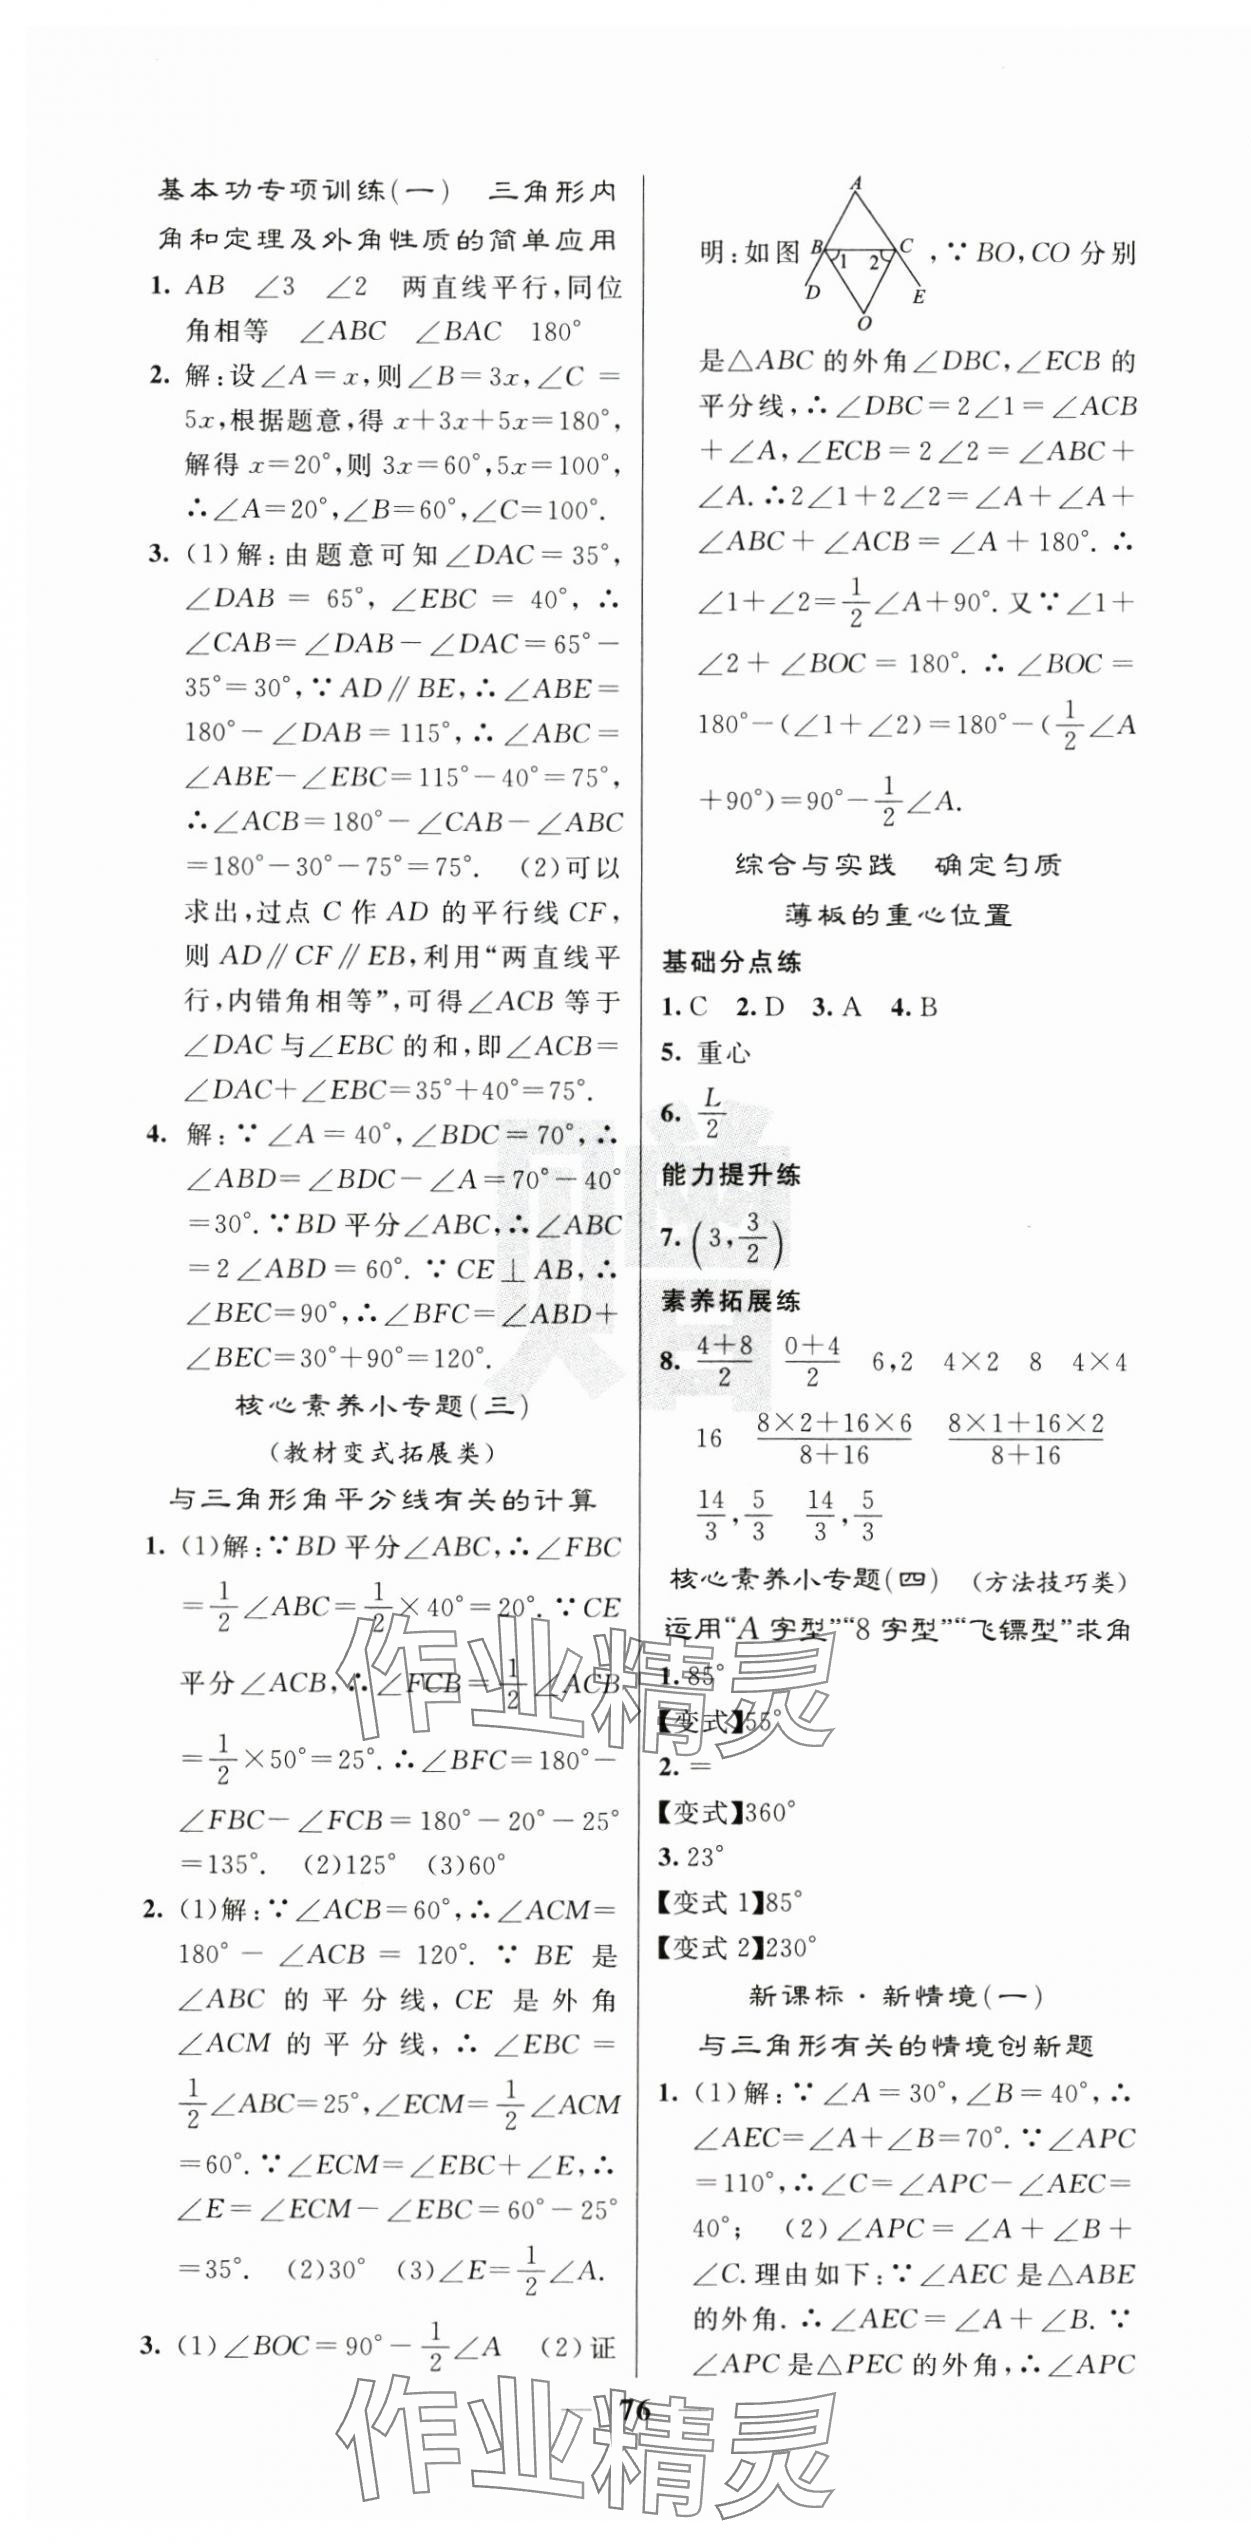 基本功专项训练(一)　三角形内
角和定理及外角性质的简单应用
1. AB　∠3　∠2　两直线平行,同位
角相等　∠ABC　∠BAC　180°
2. 解:设∠A=x,则∠B=3x,∠C=
5x,根据题意,得 x+3x+5x=180°,
解得 x=20°,则 3x=60°,5x=100°,
∴∠A=20°,∠B=60°,∠C=100°.
3. (1)解:由题意可知∠DAC=35°,
∠DAB=65°,∠EBC=40°,∴
∠CAB=∠DAB-∠DAC=65°-
35°=30°,∵AD∥BE,∴∠ABE=
180°-∠DAB=115°,∴∠ABC=
∠ABE-∠EBC=115°-40°=75°,
∴∠ACB=180°-∠CAB-∠ABC
=180°-30°-75°=75°.　(2)可以
求出,过点 C 作 AD 的平行线 CF,
则 AD∥CF∥EB,利用“两直线平
行,内错角相等”,可得∠ACB 等于
∠DAC 与∠EBC 的和,即∠ACB=
∠DAC+∠EBC=35°+40°=75°.
4. 解:∵∠A=40°,∠BDC=70°,∴
∠ABD=∠BDC-∠A=70°-40°
=30°.∵BD 平分∠ABC,∴∠ABC
=2∠ABD=60°.∵CE⊥AB,∴
∠BEC=90°,∴∠BFC=∠ABD+
∠BEC=30°+90°=120°.
核心素养小专题(三)
(教材变式拓展类)
与三角形角平分线有关的计算
1. (1)解:∵BD 平分∠ABC,∴∠FBC
=1/2∠ABC=1/2×40°=20°.∵CE
平分∠ACB,∴∠FCB=1/2∠ACB
=1/2×50°=25°.∴∠BFC=180°-
∠FBC-∠FCB=180°-20°-25°
=135°.　(2)125°　(3)60°
2. (1)解:∵∠ACB=60°,∴∠ACM=
180°-∠ACB=120°.∵BE 是
∠ABC 的平分线,CE 是外角
∠ACM 的平分线,∴∠EBC=
1/2∠ABC=25°,∠ECM=1/2∠ACM
=60°.∵∠ECM=∠EBC+∠E,∴
∠E=∠ECM-∠EBC=60°-25°
=35°.　(2)30°　(3)∠E=1/2∠A.
3. (1)∠BOC=90°-1/2∠A　(2)证
A
明:如图 B 1 2 C ,∵BO,CO 分别
D E
O
是△ABC 的外角∠DBC,∠ECB 的
平分线,∴∠DBC=2∠1=∠ACB
+∠A,∠ECB=2∠2=∠ABC+
∠A.∴2∠1+2∠2=∠A+∠A+
∠ABC+∠ACB=∠A+180°.∴
∠1+∠2=1/2∠A+90°.又∵∠1+
∠2+∠BOC=180°.∴∠BOC=
180°-(∠1+∠2)=180°-(1/2∠A
+90°)=90°-1/2∠A.
综合与实践　确定匀质
薄板的重心位置
基础分点练
1. C　2. D　3. A　4. B
5. 重心
6. L/2
能力提升练
7. (3,3/2)
素养拓展练
8. (4+8)/2　(0+4)/2　6,2　4×2　8　4×4
16　(8×2+16×6)/(8+16)　(8×1+16×2)/(8+16)
14/3,5/3　14/3,5/3
核心素养小专题(四)　(方法技巧类)
运用“A 字型”“8 字型”“飞镖型”求角
1. 85°
【变式】55°
2. =
【变式】360°
3. 23°
【变式 1】85°
【变式 2】230°
新课标·新情境(一)
与三角形有关的情境创新题
1. (1)解:∵∠A=30°,∠B=40°,∴
∠AEC=∠A+∠B=70°.∵∠APC
=110°,∴∠C=∠APC-∠AEC=
40°;　(2)∠APC=∠A+∠B+
∠C.理由如下:∵∠AEC 是△ABE
的外角.∴∠AEC=∠A+∠B.∵
∠APC 是△PEC 的外角,∴∠APC
76
赠
作业精灵
作业精灵